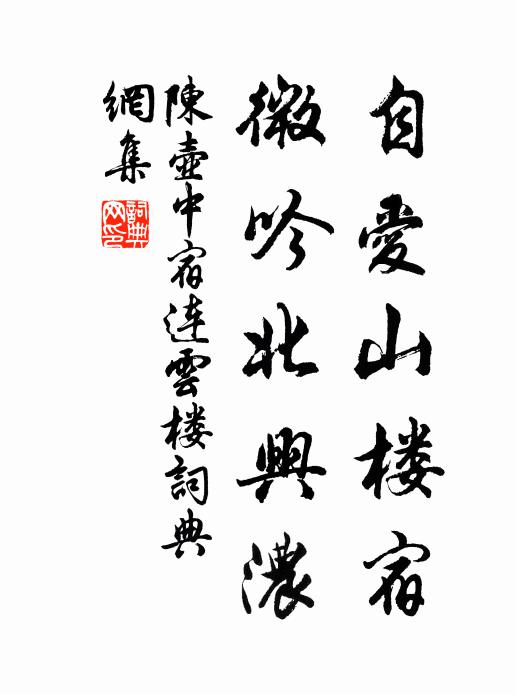 自愛山楼宿
微吟北興濃
陳壺中宿连雲楼詞典
網集
詞典網印